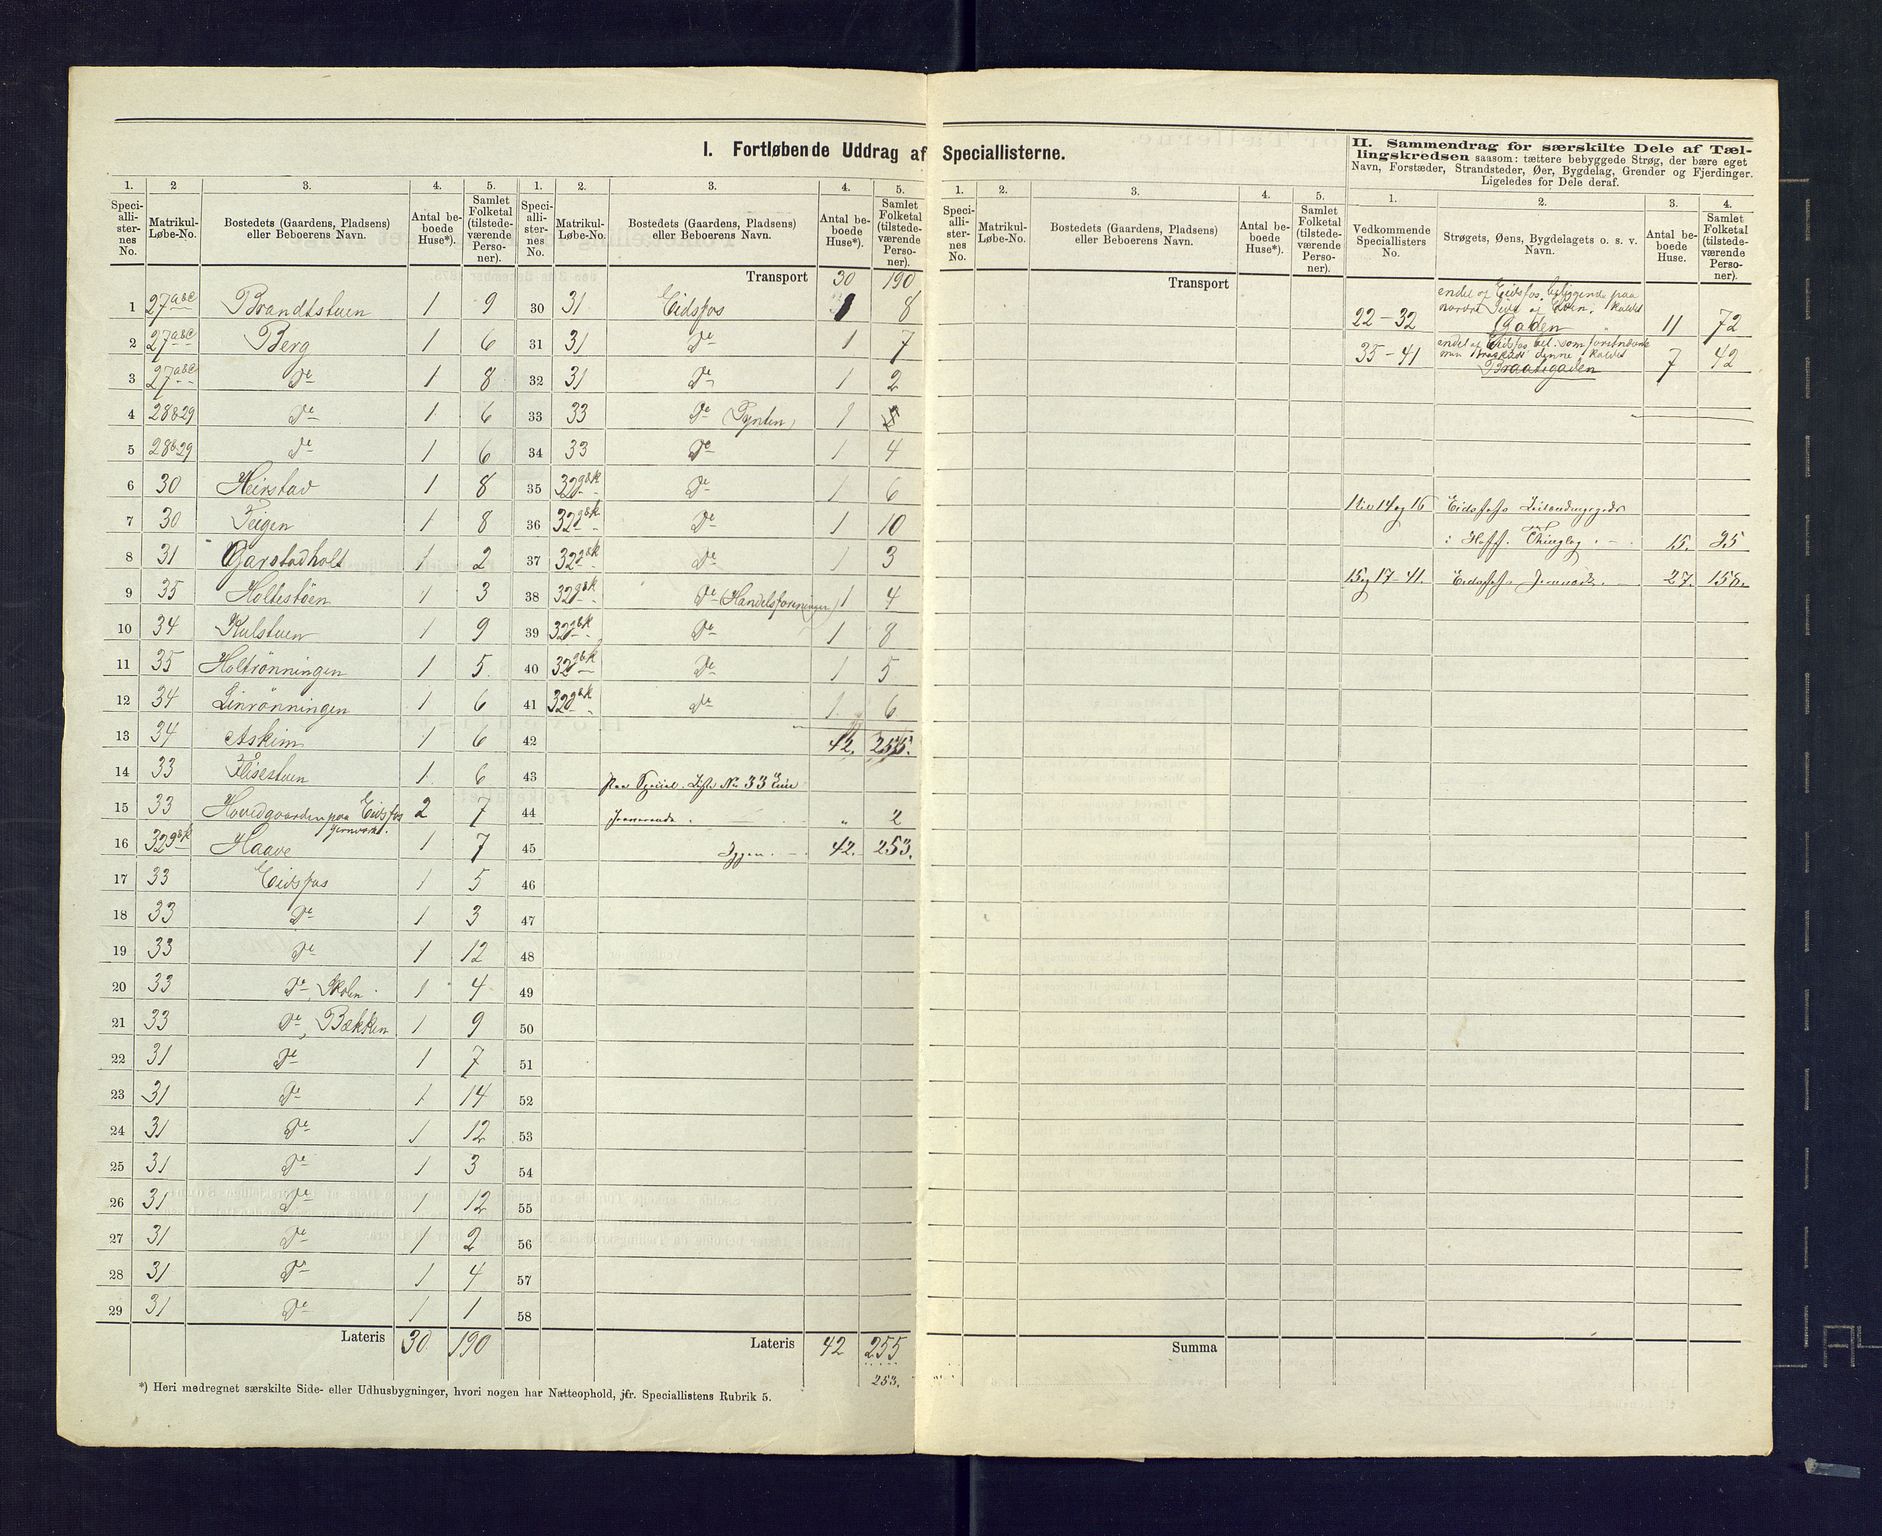 I. Fortløbende Uddrag af Speciallisterne.
II. Sammendrag for særskilte Dele af Tæl-
lingskredsen saasom: tættere bebyggede Strøg, der bære eget
Navn, Forstæder, Strandsteder, Øer, Bygdelag, Grender og Fjerdinger.
Ligeledes for Dele deraf.
1. 2 3. 4. 5. 1. 2. 3. 4. 5.
Speci-alli-ster-nes No. Matrikul-Løbe-No. Bostedets (Gaardens, Pladsens) eller Beboerens Navn. Antal be-boede Huse*). Samlet Folketal (tilstede-værende Perso-ner).
Speci-alli-ster-nes No. Matrikul-Løbe-No. Bostedets (Gaardens, Pladsens) eller Beboerens Navn. Antal be-boede Huse*). Samlet Folketal (tilstede-værende Perso-ner).
1 27abc Brandtstuen 1 9
2 27abc Berg 1 6
3 27abc Do 1 8
4 28&29 Do 1 6
5 28&29 Do 1 6
6 30 Heirstad 1 8
7 30 Teigen 1 8
8 31 Garstadholt 1 2
9 35 Holtestøen 1 3
10 34 Kulstuen 1 9
11 35 Holtrønningen 1 5
12 34 Linrønningen 1 6
13 34 Askim 1 6
14 33 Flisestuen 1 6
15 33 Hovedgaarden paa Eidsfos Jernværk. 2 7
16 32g&k Haave 1 7
17 33 Eidsfos 1 5
18 33 Do 1 3
19 33 Do 1 12
20 33 Do Skolen 1 4
21 33 Do, Bækken 1 9
22 31 Do 1 7
23 31 Do 1 14
24 31 Do 1 12
25 31 Do 1 3
26 31 Do 1 12
27 31 Do 1 2
28 31 Do 1 4
29 31 Do 1 1
Lateris 30 190
Transport 30 190
30 31 Eidsfos 1 8
31 31 Do 1 7
32 31 Do 1 2
33 33 Do (Tynten) 1
34 33 Do 1 4
35 32g&k Do 1 6
36 32g&k Do 1 10
37 32g&k Do 1 3
38 32g&k Do (Handelsforeningen) 1 4
39 32g&k Do 1 8
40 32g&k Do 1 5
41 32g&k Do 1 6
42 42. 255.
43 paa Special. Liste No 33 Een
44 fraværende. " 2
45 Igjen. 42. 253.
46
47
48
49
50
51
52
53
54
55
56
57
58
Lateris 42 255
253.
*) Heri medregnet særskilte Side- eller Udhusbygninger, hvori nogen har Natteophold, jfr. Speciallistens Rubrik 5.
1. 2. 3. 4. 5.
Speci-alli-ster-nes No. Matrikul-Løbe-No. Bostedets (Gaardens, Pladsens) eller Beboerens Navn. Antal be-boede Huse*). Samlet Folketal (tilstede-værende Perso-ner).
Transport
Summa
1. 2. 3. 4.
Vedkommende Speciallisters No. Strøgets, Øens, Bygdelagets o. s. v. Navn. Antal be-boede Huse. Samlet Folketal (tilstede-værende Perso-ner).
endel af Eidsfos, beliggende paa
nordre Side af Elven, kaldet
22-32 Gaden 11 72
endel af Eidsfos bel. som forénævnte
kaldet
35-41 Braatagaden 7 42
1 til 14 og 16 Eidsfos
i Hoff Thinglag. 15. 95
15 og 17-41. Eidsfos Jernværk. 27. 158.